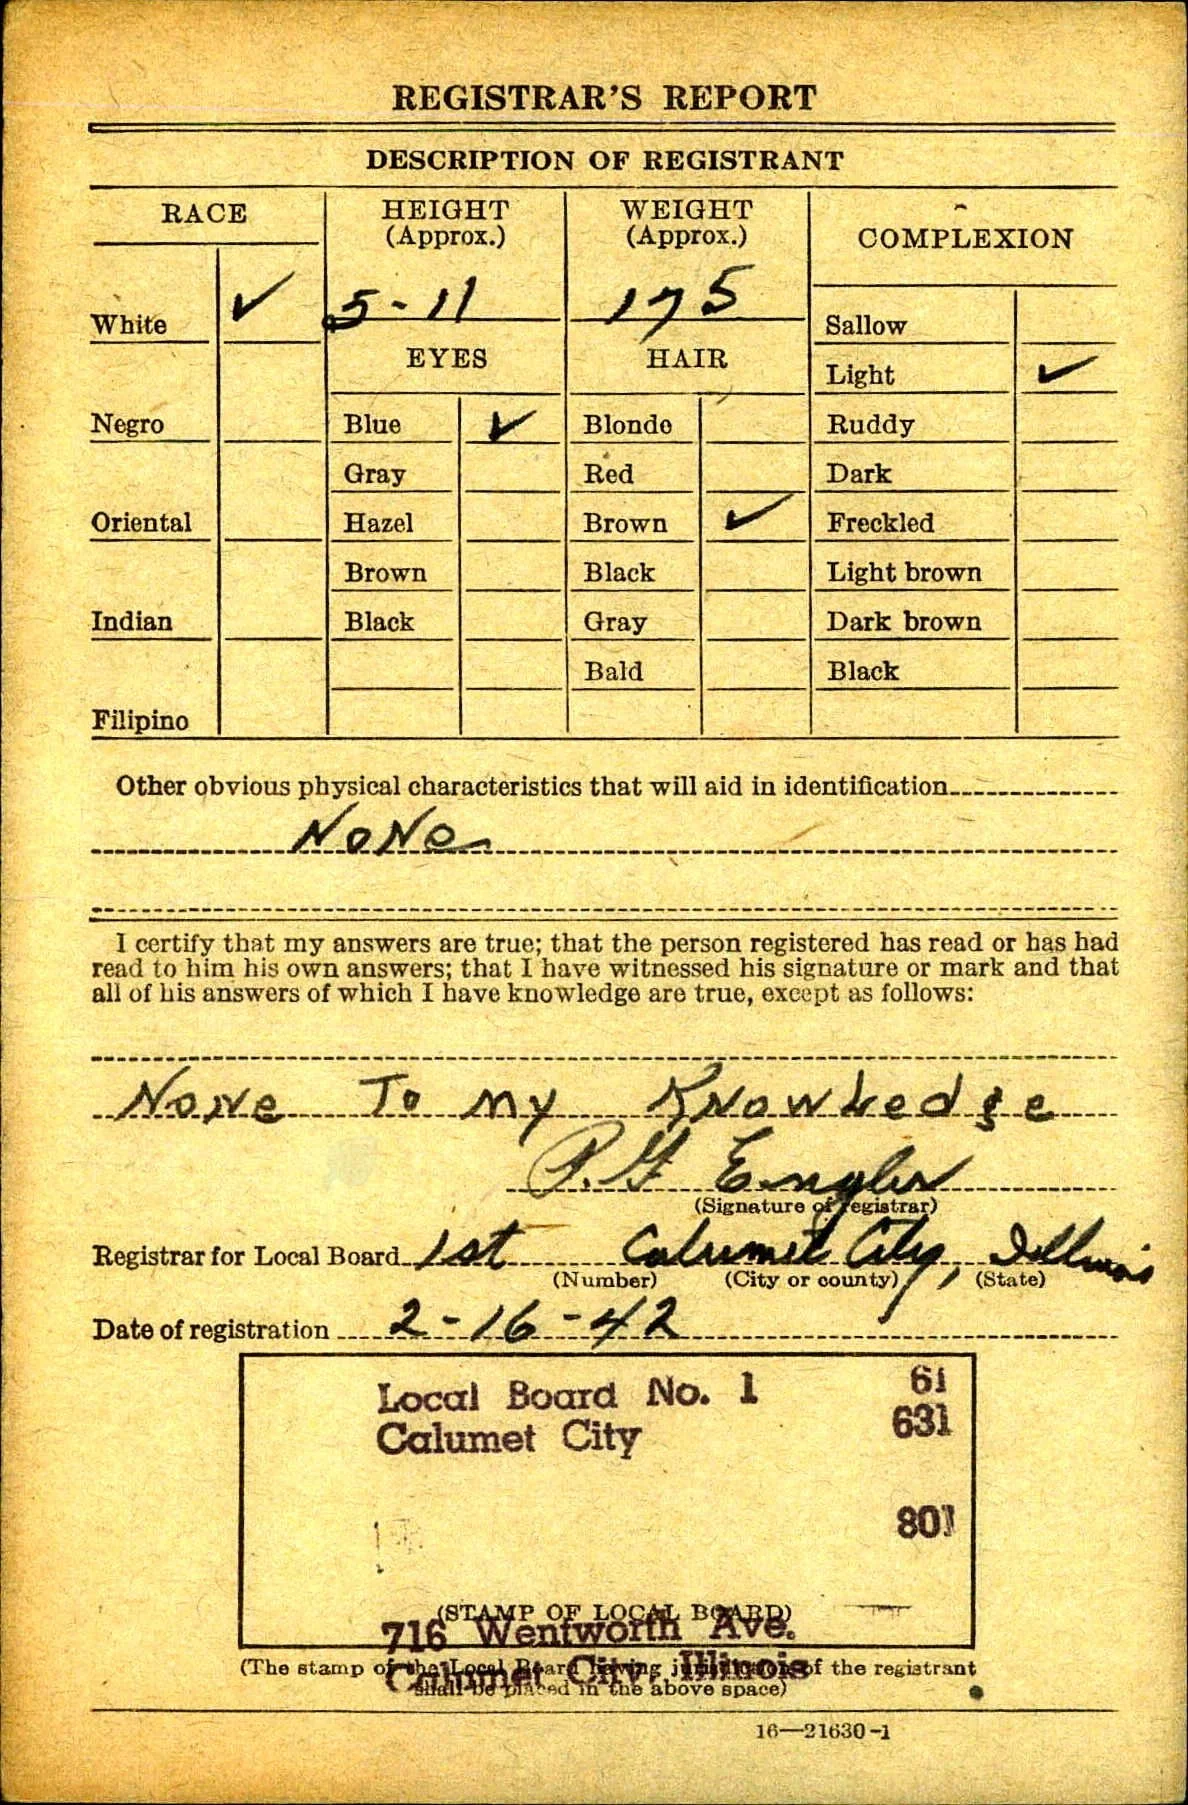 REGISTRAR'S REPORT
DESCRIPTION OF REGISTRANT
RACE
HEIGHT
(Approx.)
WEIGHT
(Approx.)
COMPLEXION
White ✓
5-11
175
Sallow
EYES
HAIR
Light ✓
Negro
Blue ✓
Blonde
Ruddy
Gray
Red
Dark
Oriental
Hazel
Brown ✓
Freckled
Brown
Black
Light brown
Indian
Black
Gray
Dark brown
Bald
Black
Filipino
Other obvious physical characteristics that will aid in identification
NoNe
I certify that my answers are true; that the person registered has read or has had
read to him his own answers; that I have witnessed his signature or mark and that
all of his answers of which I have knowledge are true, except as follows:
None To my Knowledge
P. G Engler
(Signature of registrar)
Registrar for Local Board 1st Calumet City, Illinois
(Number) (City or county) (State)
Date of registration 2-16-42
Local Board No. 1 61
Calumet City 631
801
(STAMP OF LOCAL BOARD)
716 Wentworth Ave.
(The stamp of the Local Board having jurisdiction of the registrant
Calumet City, Illinois
shall be placed in the above space)
16—21630-1